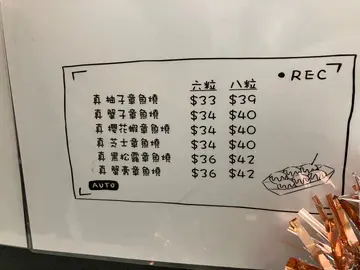 ● REC
六粒 八粒
真 柚子章魚燒 $33 $39
真 蟹子章魚燒 $34 $40
真 櫻花蝦章魚燒 $34 $40
真 芝士章魚燒 $34 $40
真 黑松露章魚燒 $36 $42
真 蟹膏章魚燒 $36 $42
AUTO